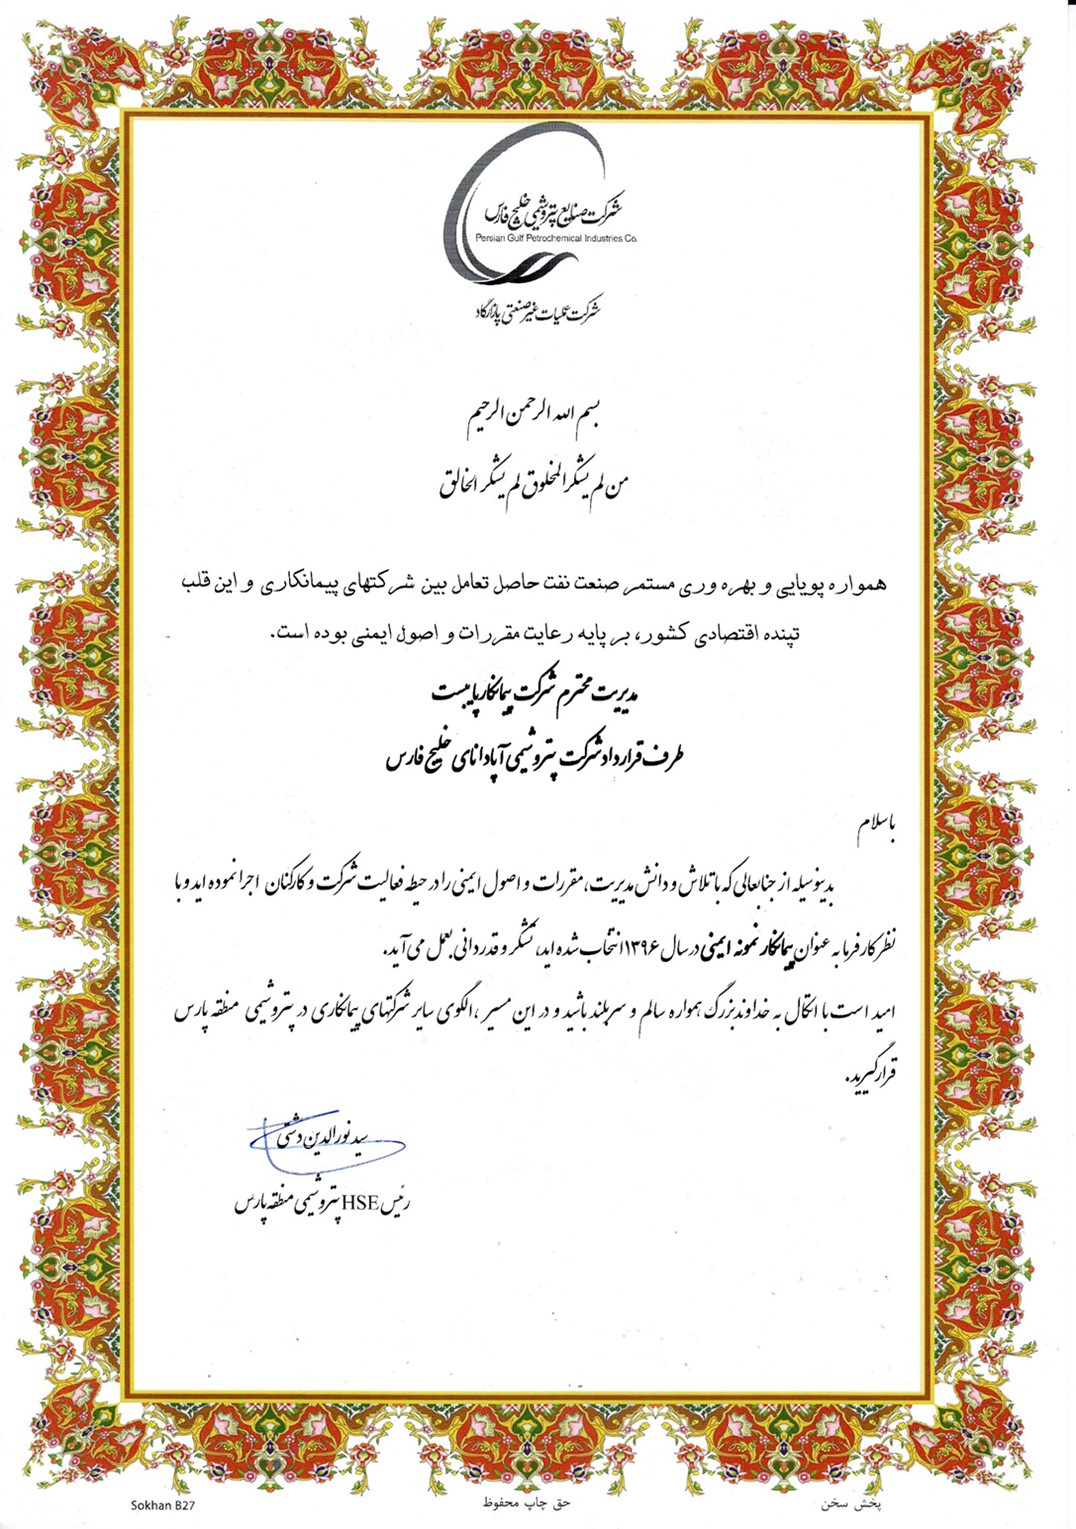 شرکت صنایع پتروشیمی خلیج فارس
Persian Gulf Petrochemical Industries Co.
شرکت عملیات غیرصنعتی پازارگاد
بسم الله الرحمن الرحیم
من لم یشکر المخلوق لم یشکر الخالق
همواره پویایی و بهره وری مستمر صنعت نفت حاصل تعامل بین شرکتهای پیمانکاری و این قلب
تپنده اقتصادی کشور، بر پایه رعایت مقررات و اصول ایمنی بوده است.
مدیریت محترم شرکت پیمانکار پایبست
طرف قرارداد شرکت پتروشیمی آپادانای خلیج فارس
با سلام
بدینوسیله از جنابعالی که با تلاش و دانش مدیریت، مقررات و اصول ایمنی را در حیطه فعالیت شرکت و کارکنان اجرا نموده اید و با
نظر کارفرما به عنوان پیمانکار نمونه ایمنی در سال ۱۳۹۶ انتخاب شده اید، تشکر و قدردانی بعمل می آید.
امید است با اتکال به خداوند بزرگ همواره سالم و سربلند باشید و در این مسیر ،الگوی سایر شرکتهای پیمانکاری در پتروشیمی منطقه پارس
قرار گیرید.
سید نورالدین دشتی
رئیس HSE پتروشیمی منطقه پارس
پخش سخن
حق چاپ محفوظ
Sokhan B27